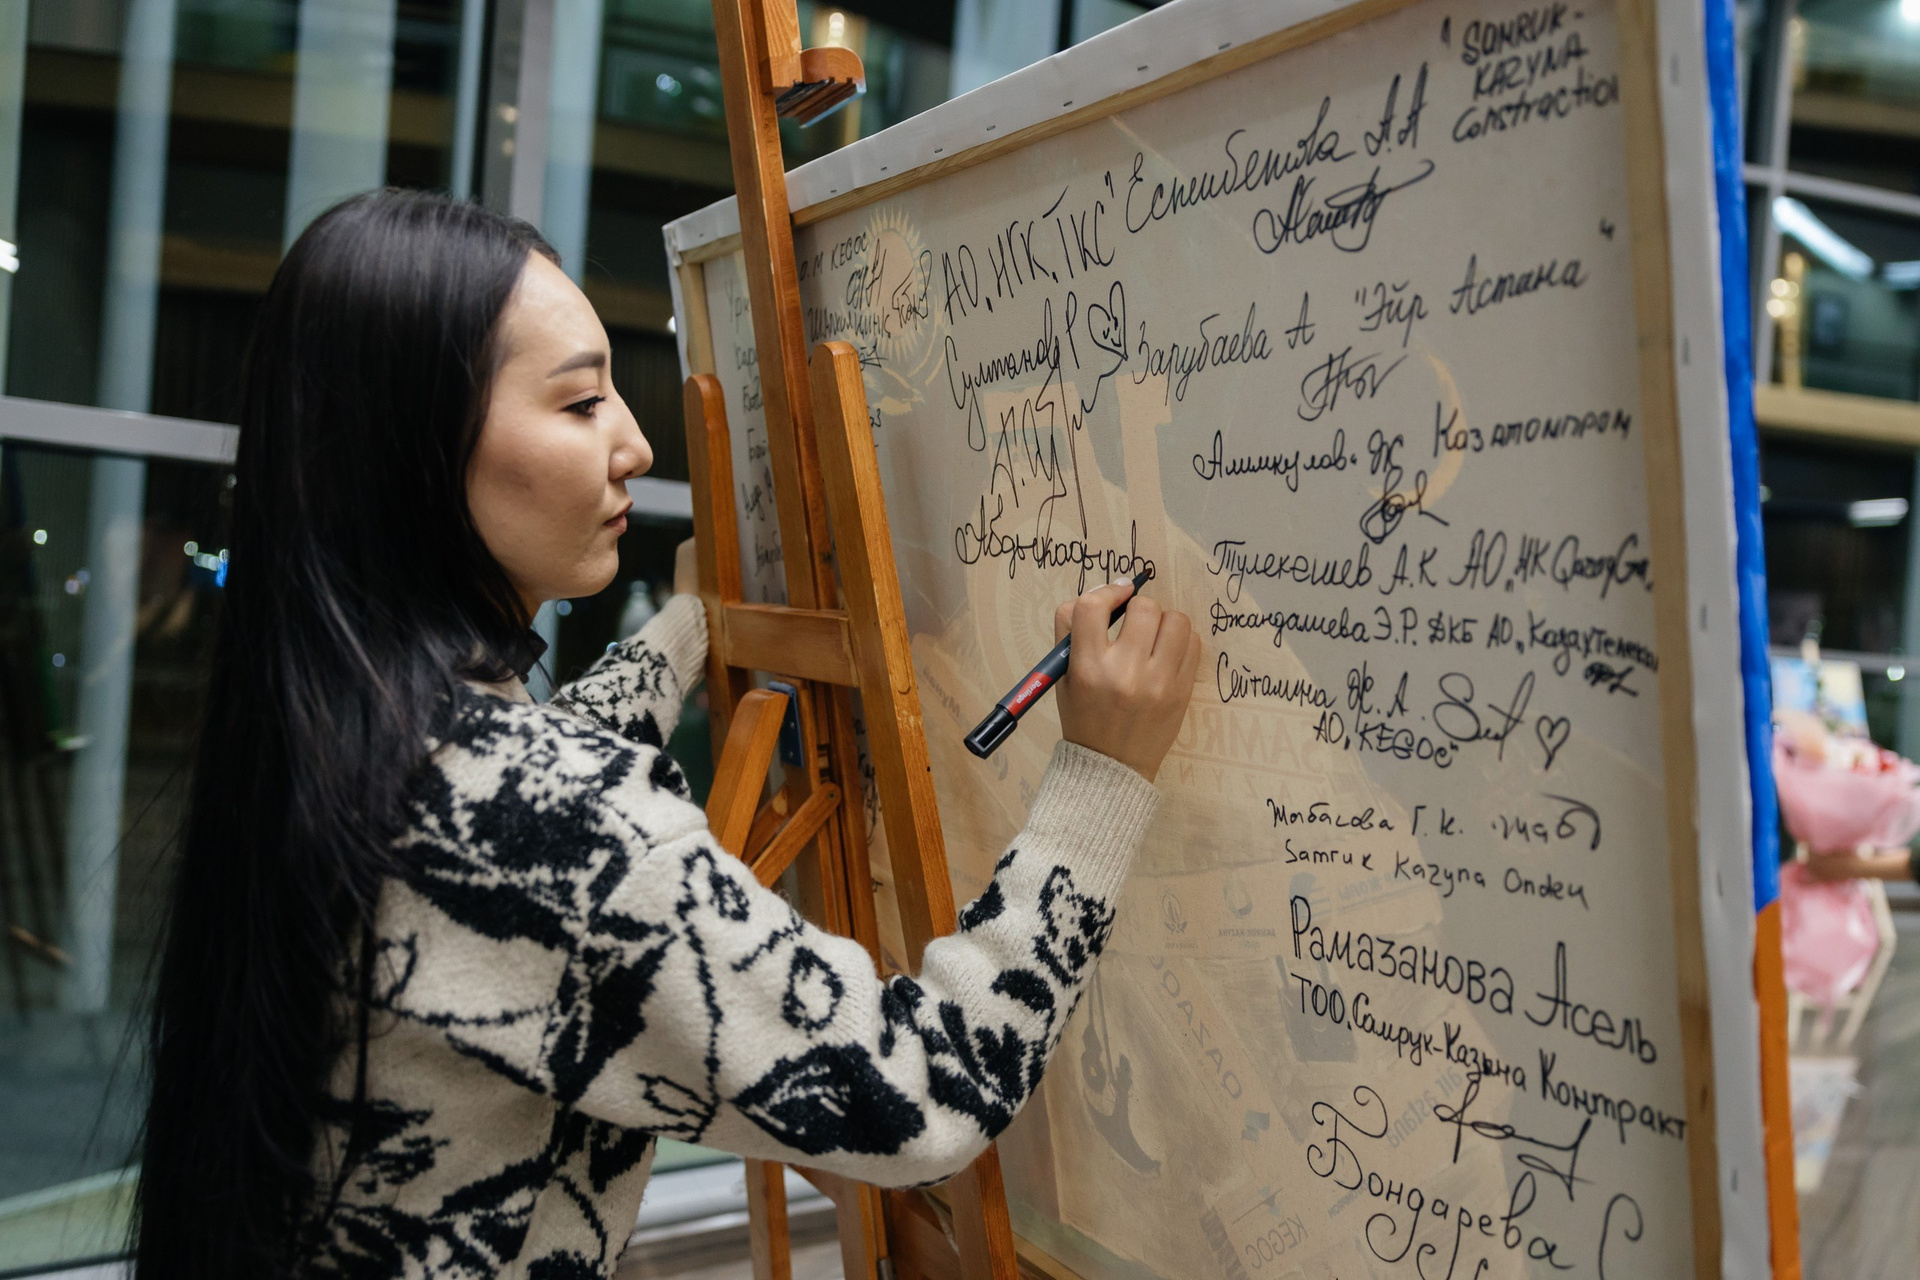 "SAMRUK-
KAZYNA
Constraction
АО „НГК „ТКС" Есенибетова А.А
О.М KEGOC
Султанова Р
Зарубаева А "Эйр Астана"
Алимкулов. Ж Казатомпром
Абдыкадырова
Тулекешев А.К АО „НК QazaqGaz
Джандашева Э.Р. ДКБ АО „Казахтелеком
Сейталина Ж. А.
АО „KEGOC"
Жыбасова Г. К.
Samruk Kazyna Ondeu
Рамазанова Асель
ТОО „Самрук-Казына Контракт
Бондарева С
Berlingo
SAMRUK
KAZYNA
QAZAQ
air astana
KEGOC